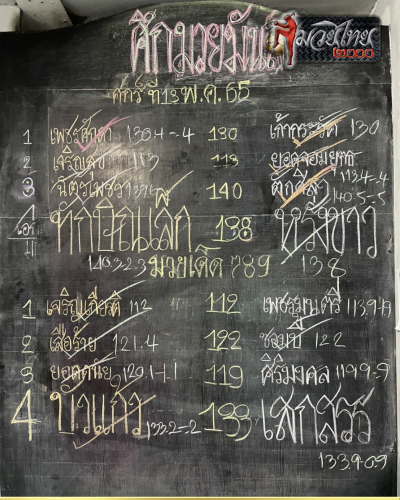 ศึกมวยมันส์
มวยไทย
2000
ศุกร์ที่ 13 พ.ค. 65
1 เพชรจำดา 130.4-.4 130 เก้ากระรัต 130
2 เจริญสุข 113 113 ยอดจอมยุทธ
113.4-.4
3 ฉัตรเพชร 140 ตั๊กสีลา
140.5-.5
4 เอก ทักษิณเล็ก 138 หงส์ขาว
140.3-2.3 มวยเด็ด 789 138
1 เจริญเกียรติ 112 112 เพชรมนตรี 113.9-.9
2 เสือร้าย 121.4 122 122
3 ยอดคนัย 120.1-1.1 119 ศิริมงคล 119.9-.9
4 บัวแก้ว 133.2-.2 133 เสกสรร
133.9-0.9